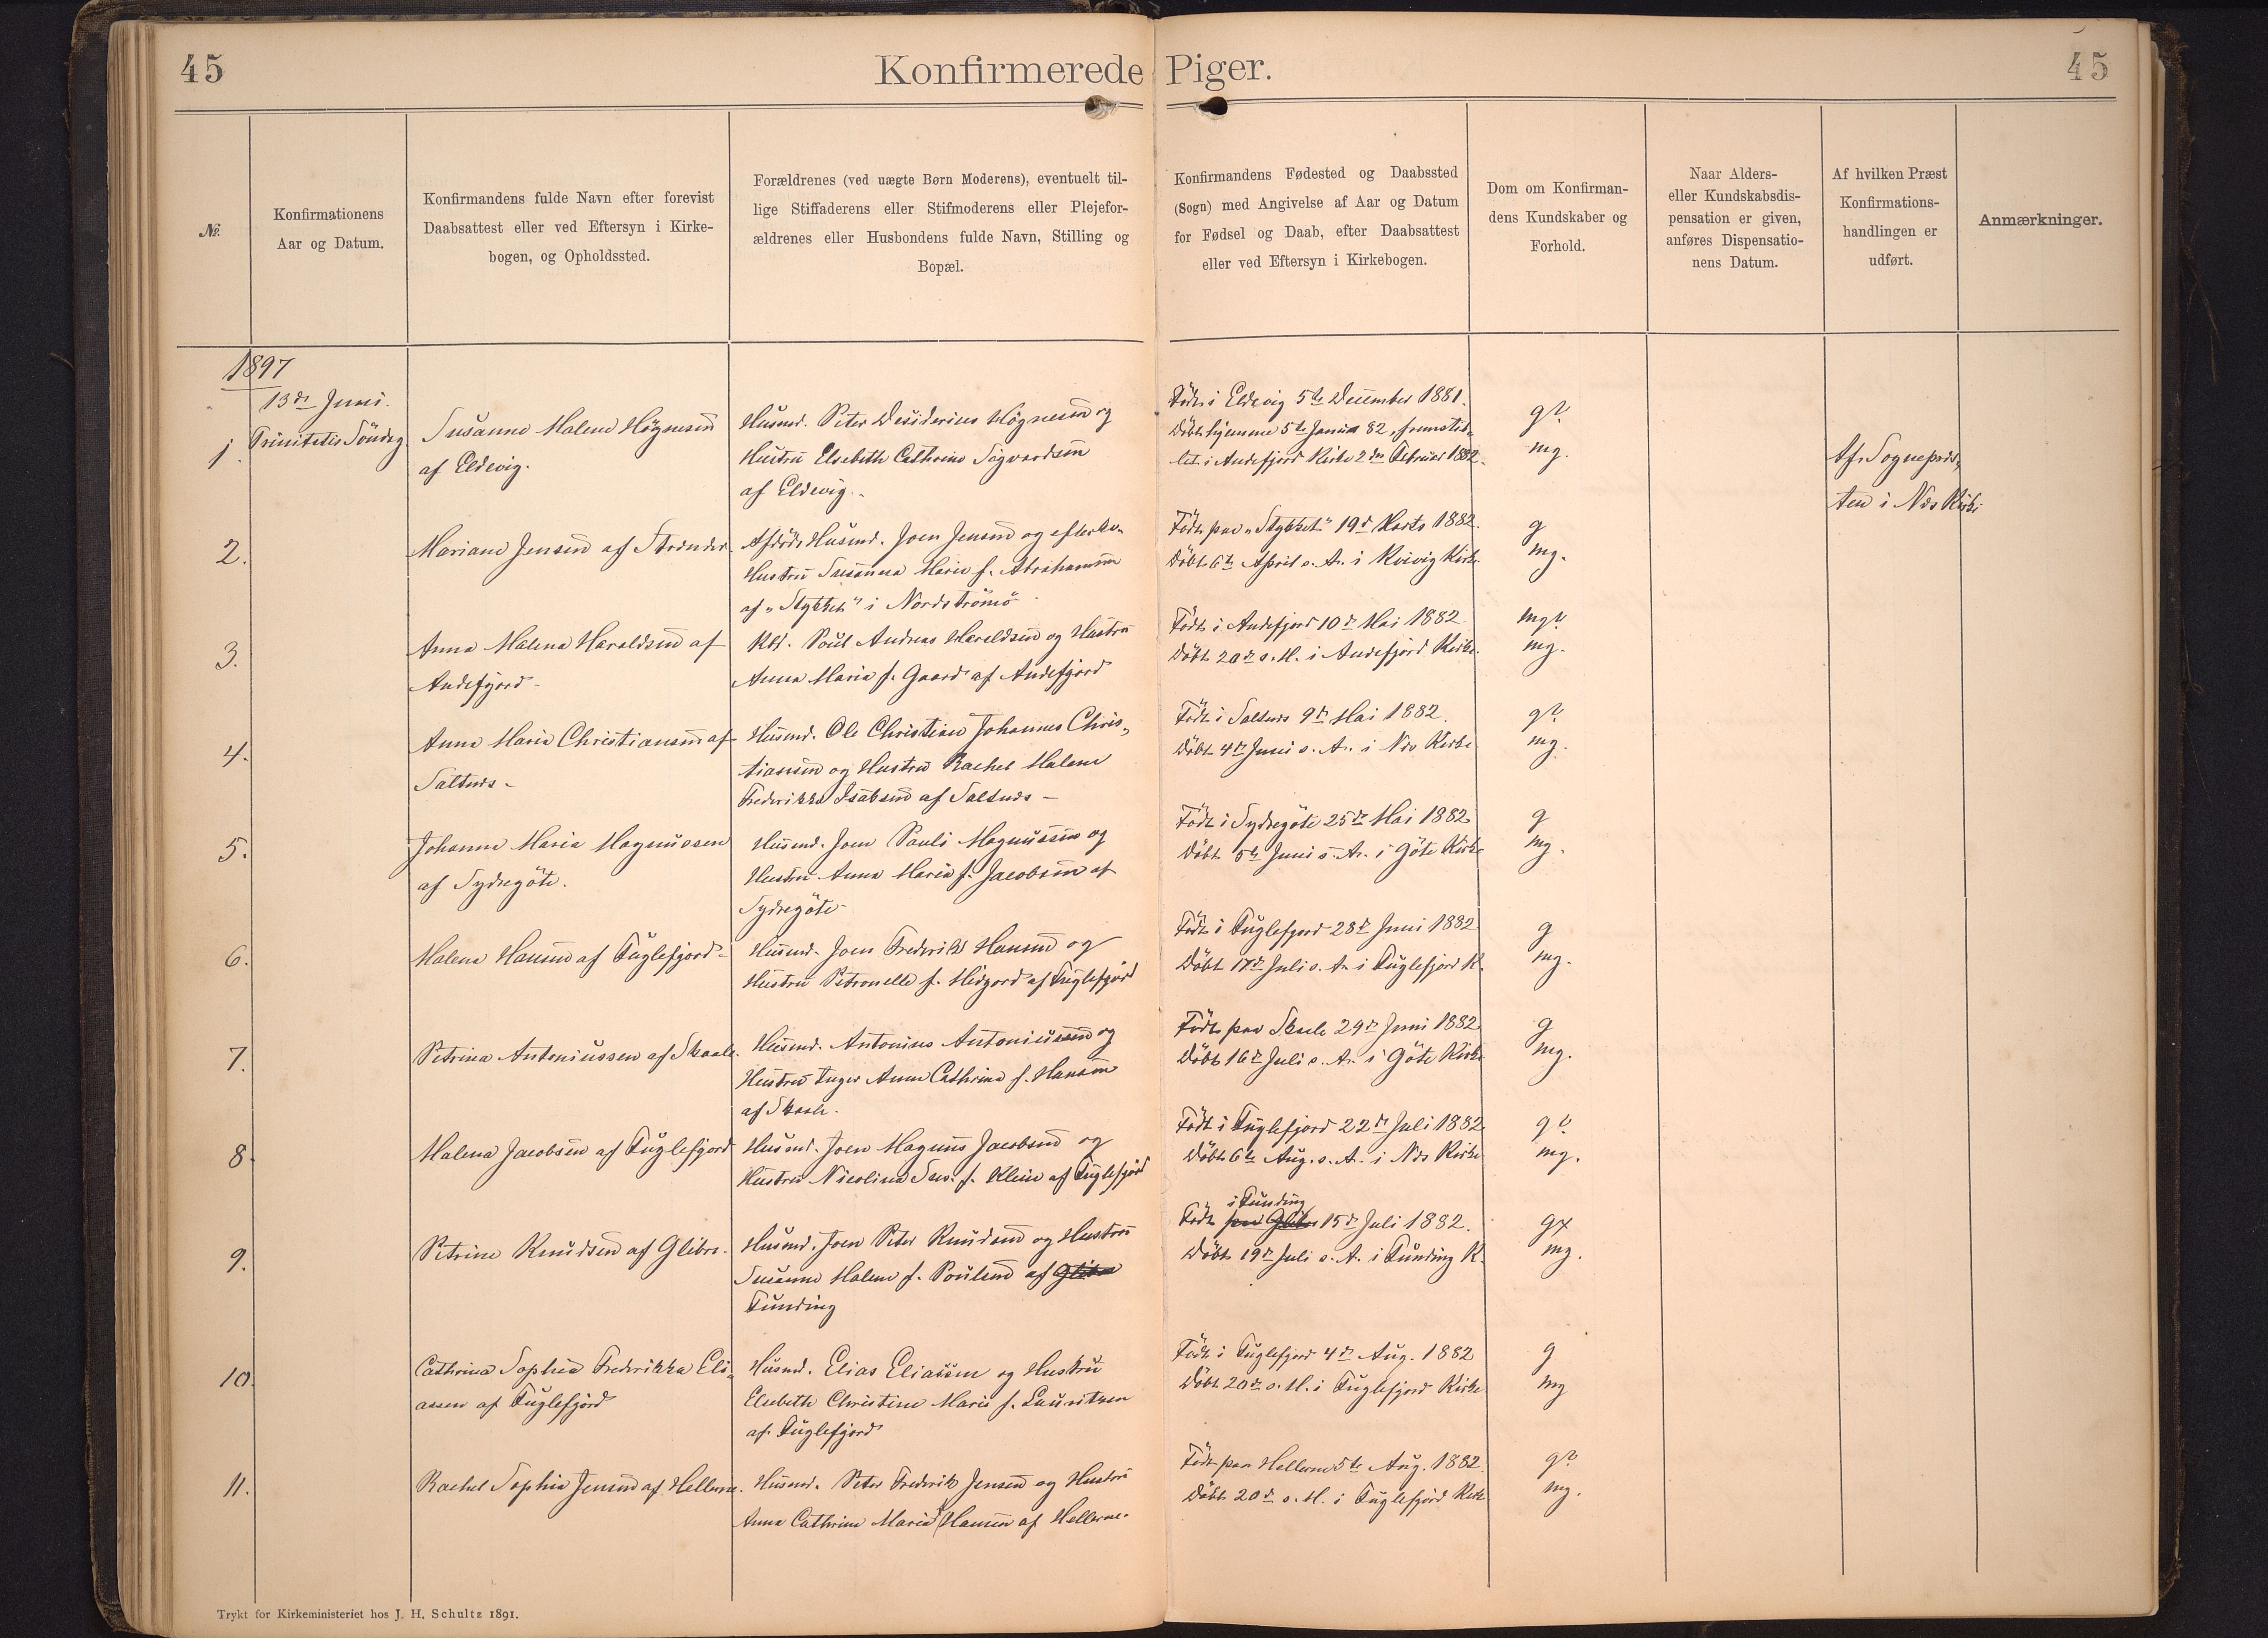 45
Konfirmerede Piger.
45
№.
Konfirmationens
Aar og Datum.
Konfirmandens fulde Navn efter forevist
Daabsattest eller ved Eftersyn i Kirke-
bogen, og Opholdssted.
Forældrenes (ved uægte Børn Moderens), eventuelt til-
lige Stiffaderens eller Stifmoderens eller Plejefor-
ældrenes eller Husbondens fulde Navn, Stilling og
Bopæl.
Konfirmandens Fødested og Daabssted
(Sogn) med Angivelse af Aar og Datum
for Fødsel og Daab, efter Daabsattest
eller ved Eftersyn i Kirkebogen.
Dom om Konfirman-
dens Kundskaber og
Forhold.
Naar Alders-
eller Kundskabsdis-
pensation er given,
anføres Dispensatio-
nens Datum.
Af hvilken Præst
Konfirmations-
handlingen er
udført.
Anmærkninger.
1897
13de Juni.
Trinitatis Söndag
1.
Susanne Malene Högnesen
af Eldevig.
Husmd. Peter Desiderius Högnesen og
Hustru Elsebeth Cathrine Sigvardsen
af Eldevig.
Födt i Eldevig 5te December 1881.
Döbt hjemme 5te Januar 82, fremstil-
let i Andefjord Kirke 2den Februar 1882.
g?
mg.
Af Sognepræs-
ten i Næs Kirke
2.
Mariane Jensen af Strender
Afdöde Husmd. Joen Jensen og efterlev.
Hustru Susanna Marie f. Abrahamsen
af "Stykket" i Nordströmö
Födt paa "Stykket" 19de Marts 1882.
Döbt 6te April s. A. i Kvivig Kirke
g
mg.
3.
Anna Malena Haraldsen af
Andefjord
Kbd. Poul Andreas Haraldsen og Hustru
Anna Maria f. Gaard af Andefjord
Födt i Andefjord 10de Mai 1882
Döbt 20de s. M. i Andefjord Kirke.
mg?
mg.
4.
Anna Maria Christiansen af
Saltnæs
Husmd. Ole Christian Johannes Chris-
tiansen og Hustru Rachel Malene
Frederikke Isaksen af Saltnæs
Födt i Saltnæs 9de Mai 1882.
Döbt 4de Juni s. A. i Næs Kirke
g?
mg.
5.
Johanne Maria Magnussen
af Sydregöte.
Husmd. Joen Pauli Magnussen og
Hustru Anna Maria f. Jacobsen af
Sydregöte
Födt i Sydregöte 25de Mai 1882
Döbt 5te Juni s. A. i Göte Kirke
g
mg.
6.
Malena Hansen af Fuglefjord
Husmd. Joen Frederik Hansen og
Hustru Petronelle f. Midgord af Fuglefjord
Födt i Fuglefjord 28de Juni 1882
Döbt 17de Juli s. A. i Fuglefjord K.
g
mg.
7.
Petrina Antoniussen af Skaale.
Husmd. Antonius Antoniussen og
Hustru Inger Anna Cathrina f. Hansen
af Skaale.
Födt paa Skaale 29de Juni 1882
Döbt 16de Juli s. A. i Göte Kirke
g
mg.
8.
Malena Jacobsen af Fuglefjord
Husmd. Joen Magnus Jacobsen og
Hustru Nicolina Sus. f. Klein af Fuglefjord
Födt i Fuglefjord 22de Juli 1882
Döbt 6te Aug. s. A. i Næs Kirke
g?
mg.
9.
Petrine Knudsen af Glibre.
Husmd. Joen Peter Knudsen og Hustru
Susanne Malene f. Poulsen af Glibre
Funding
i Funding
Födt paa Glibre 15de Juli 1882.
Döbt 19de Juli s. A. i Funding K.
gx
mg.
10.
Cathrina Sophia Frederikka Eli-
assen af Fuglefjord
Husmd. Elias Eliassen og Hustru
Elsebeth Christine Marie f. Lauritzen
af Fuglefjord
Födt i Fuglefjord 4de Aug. 1882
Döbt 20de s. M. i Fuglefjord Kirke
g
mg
11.
Rachel Sophia Jensen af Hellerne.
Husmd. Peter Frederik Jensen og Hustru
Anna Cathrine Maria f. Hansen af Hellerne.
Födt paa Hellerne 5te Aug. 1882.
Döbt 20de s. M. i Fuglefjord Kirke
g?
mg.
Trykt for Kirkeministeriet hos J. H. Schultz 1891.